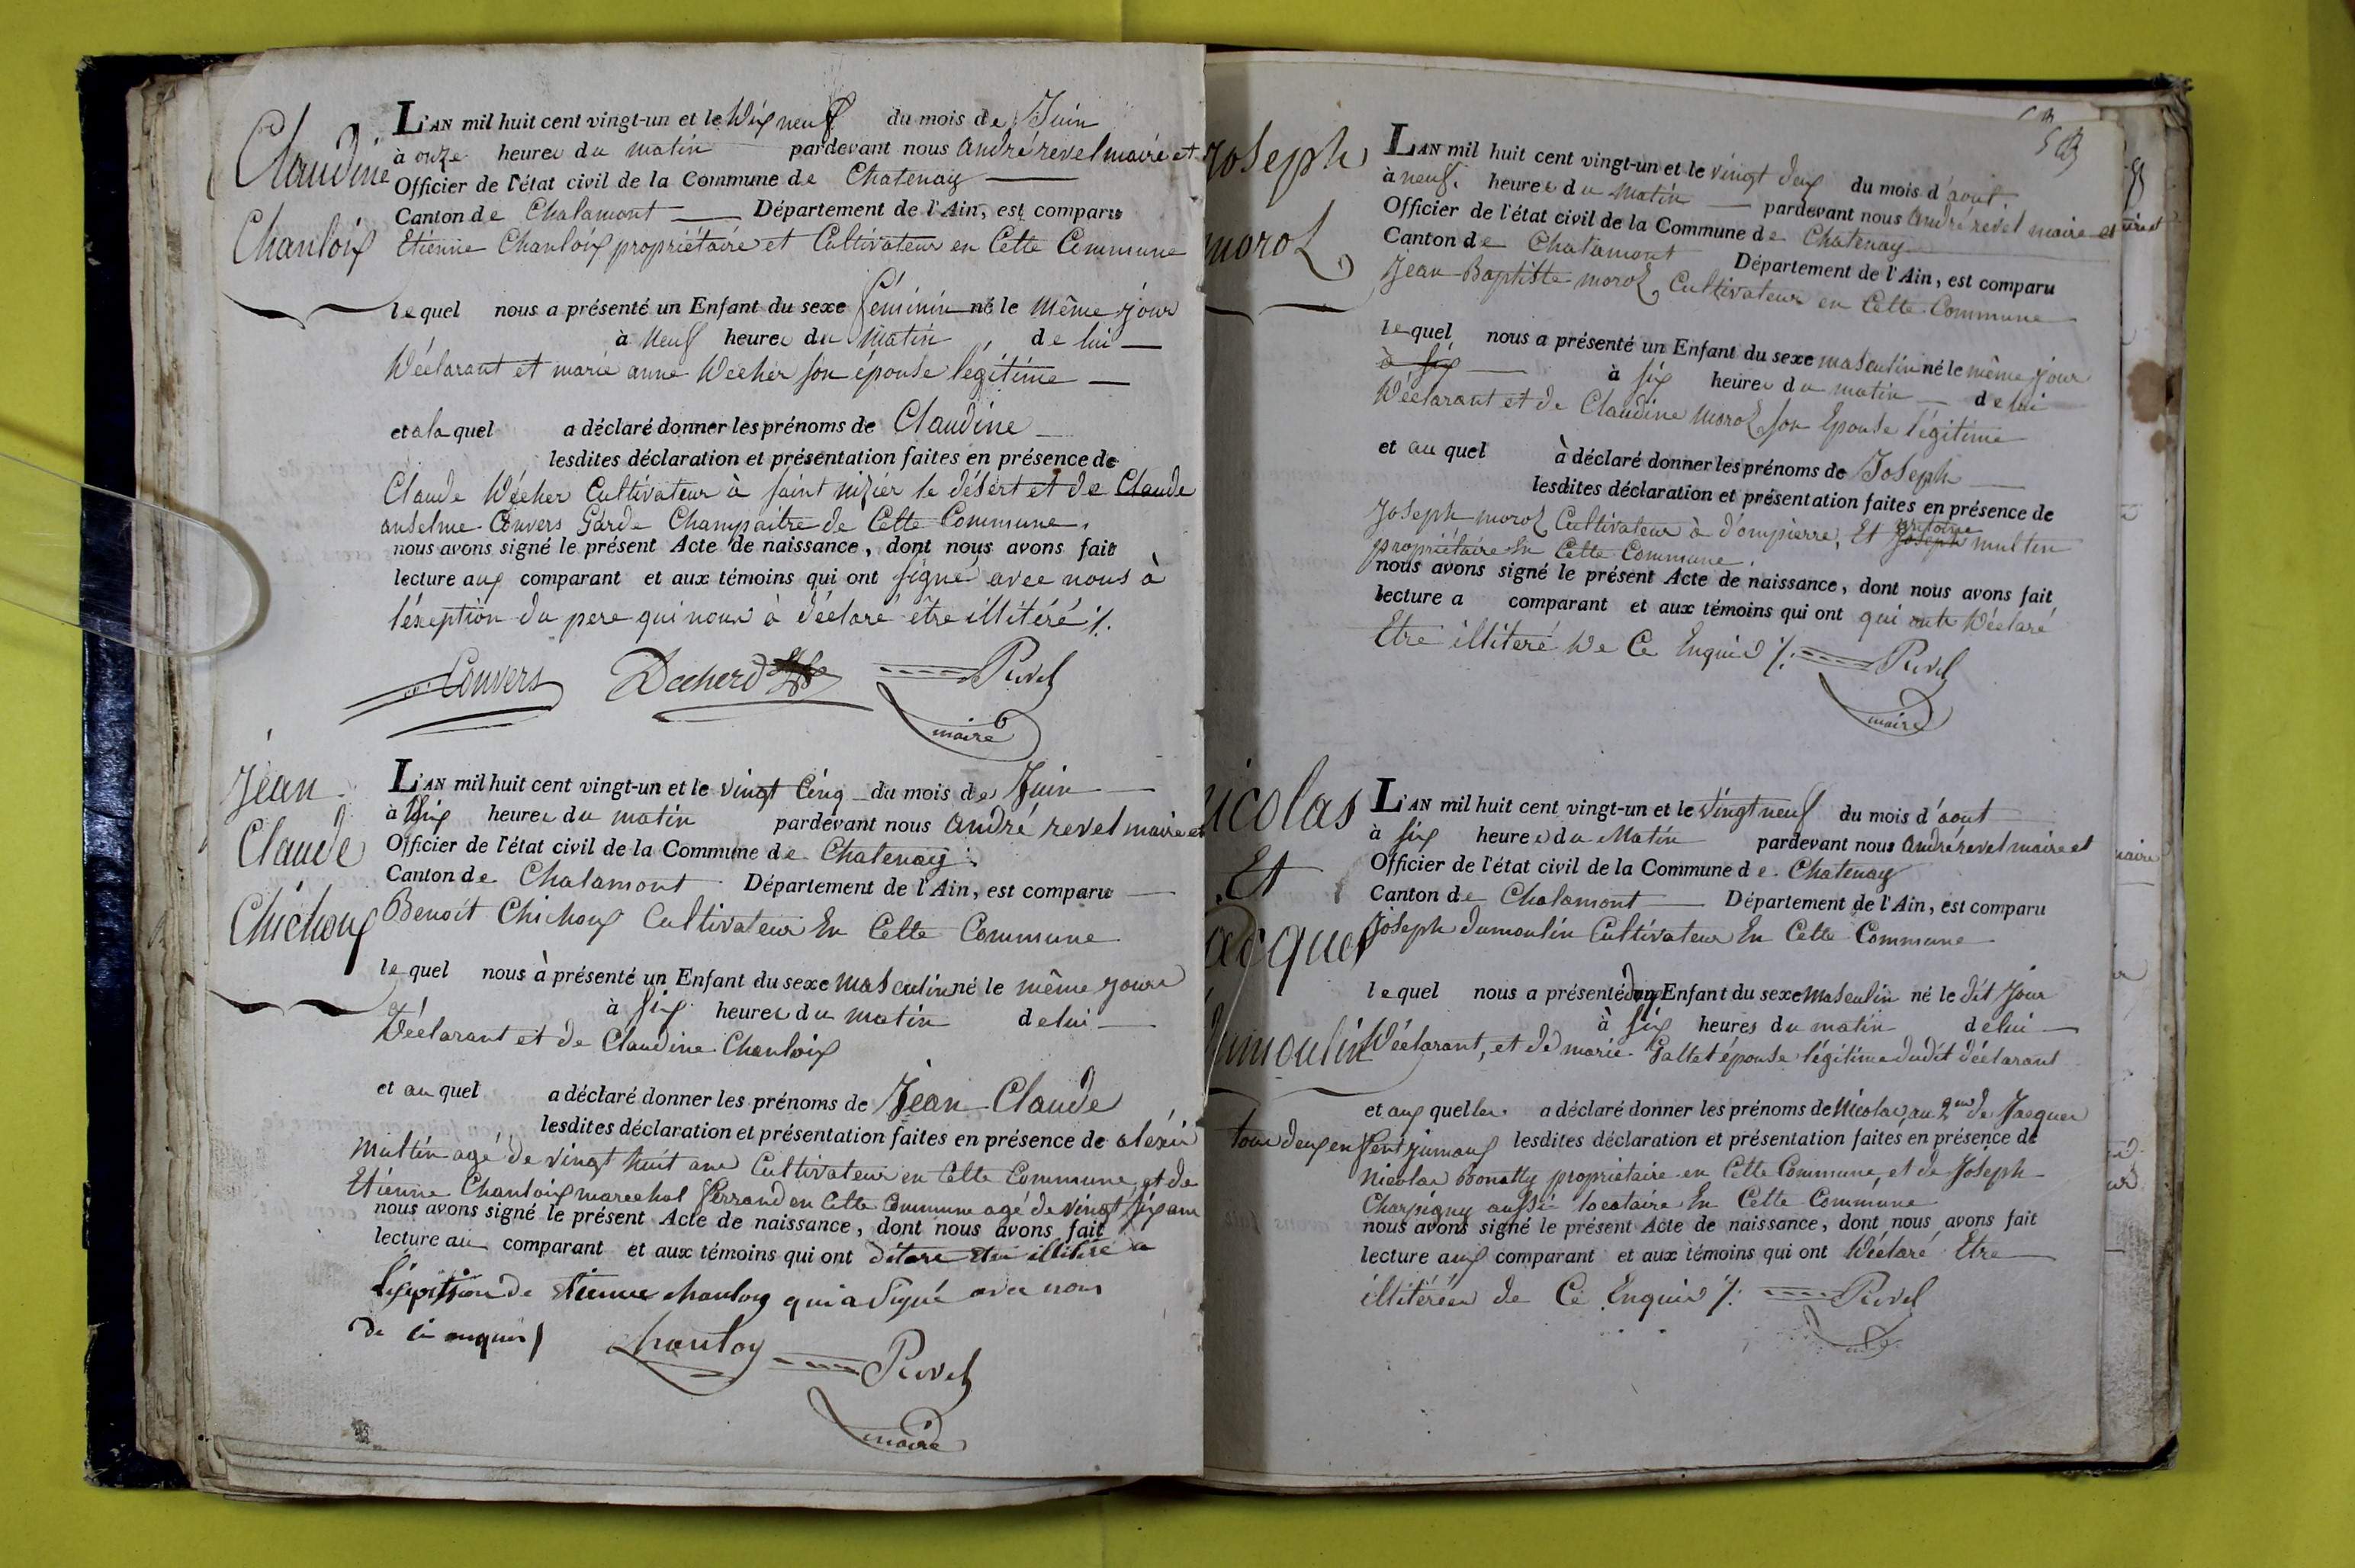 Claudine
Chanloix
L'AN mil huit cent vingt-un et le dix neuf du mois de Juin
à onze heures du matin pardevant nous andré revel maire et
Officier de l'état civil de la Commune de Chatenay
Canton de Chalamont Département de l'Ain, est comparu
Etienne Chanloix propriétaire et Cultivateur en Cette Commune
lequel nous a présenté un Enfant du sexe féminin né le même jour
à neuf heures du matin, de lui
déclarant et marie anne decher son épouse légitime
et a la quel a déclaré donner les prénoms de Claudine
lesdites déclaration et présentation faites en présence de
Claude décher Cultivateur à saint nizier le désert et de Claude
anselme Convers Garde Champaitre de Cette Commune.
nous avons signé le présent Acte de naissance, dont nous avons fait
lecture aux comparant et aux témoins qui ont signé avec nous à
l'éxeption du pere qui nous à déclaré être illitéré ./.
Convers Decherd Revel
maire
Jean
Claude
Chichoux
L'AN mil huit cent vingt-un et le vingt Cinq du mois de Juin
à dix heures du matin pardevant nous andré revel maire et
Officier de l'état civil de la Commune de Chatenay
Canton de Chalamont Département de l'Ain, est comparu
Benoit Chichoux Cultivateur En Cette Commune
lequel nous à présenté un Enfant du sexe masculin né le même jours
à six heures du matin de lui
déclarant et de Claudine Chanloix
et au quel a déclaré donner les prénoms de Jean Claude
lesdites déclaration et présentation faites en présence de alexis
multin agé de vingt huit ans Cultivateur en Cette Commune, et de
Etienne Chanloix marechal ferrand en Cette Commune agé de vingt six ans
nous avons signé le présent Acte de naissance, dont nous avons fait
lecture au comparant et aux témoins qui ont illitéré a
de Etienne chanloy qui a signé avec nous
de ce enquis
chanloy Revel
maire
Joseph
morel
L'AN mil huit cent vingt-un et le vingt deux du mois d'aout
à neuf heures du matin pardevant nous André revel maire et
Officier de l'état civil de la Commune de Chatenay
Canton de Chatamont Département de l'Ain, est comparu
Jean-Baptiste morel, Cultivateur en Cette Commune
lequel nous a présenté un Enfant du sexe masculin né le même jour
à six à six heures du matin de lui
déclarant et de Claudine morel son Epouse légitime
et au quel à déclaré donner les prénoms de Joseph
lesdites déclaration et présentation faites en présence de
Joseph morel Cultivateur à dompierre, Et Joseph antoine multin
propriétaire En Cette Commune.
nous avons signé le présent Acte de naissance, dont nous avons fait
lecture a comparant et aux témoins qui ont qui ont déclaré
Etre illiteré de Ce Enquis ./. Revel
maire
nicolas
Et
Jacques
dumoulin
L'AN mil huit cent vingt-un et le vingt neuf du mois d'aout
à six heures du Matin pardevant nous André revel maire et
Officier de l'état civil de la Commune de Chatenay
Canton de Chalamont Département de l'Ain, est comparu
Joseph dumoulin Cultivateur En Cette Commune
lequel nous a présenté deux Enfant du sexe masculin né le dit jour
à six heures du matin de lui
déclarant, et de marie Gallet épouse légitime dudit déclarant
et aux quelles a déclaré donner les prénoms de Nicolas, au 2me de Jacques
tous deux enfent jumaux lesdites déclaration et présentation faites en présence de
nicolas Bonally propriétaire en Cette Commune, et de Joseph
Charpigny aussi locataire En Cette Commune
nous avons signé le présent Acte de naissance, dont nous avons fait
lecture aux comparant et aux témoins qui ont déclaré Etre
illitérés de Ce Enquis ./. Revel